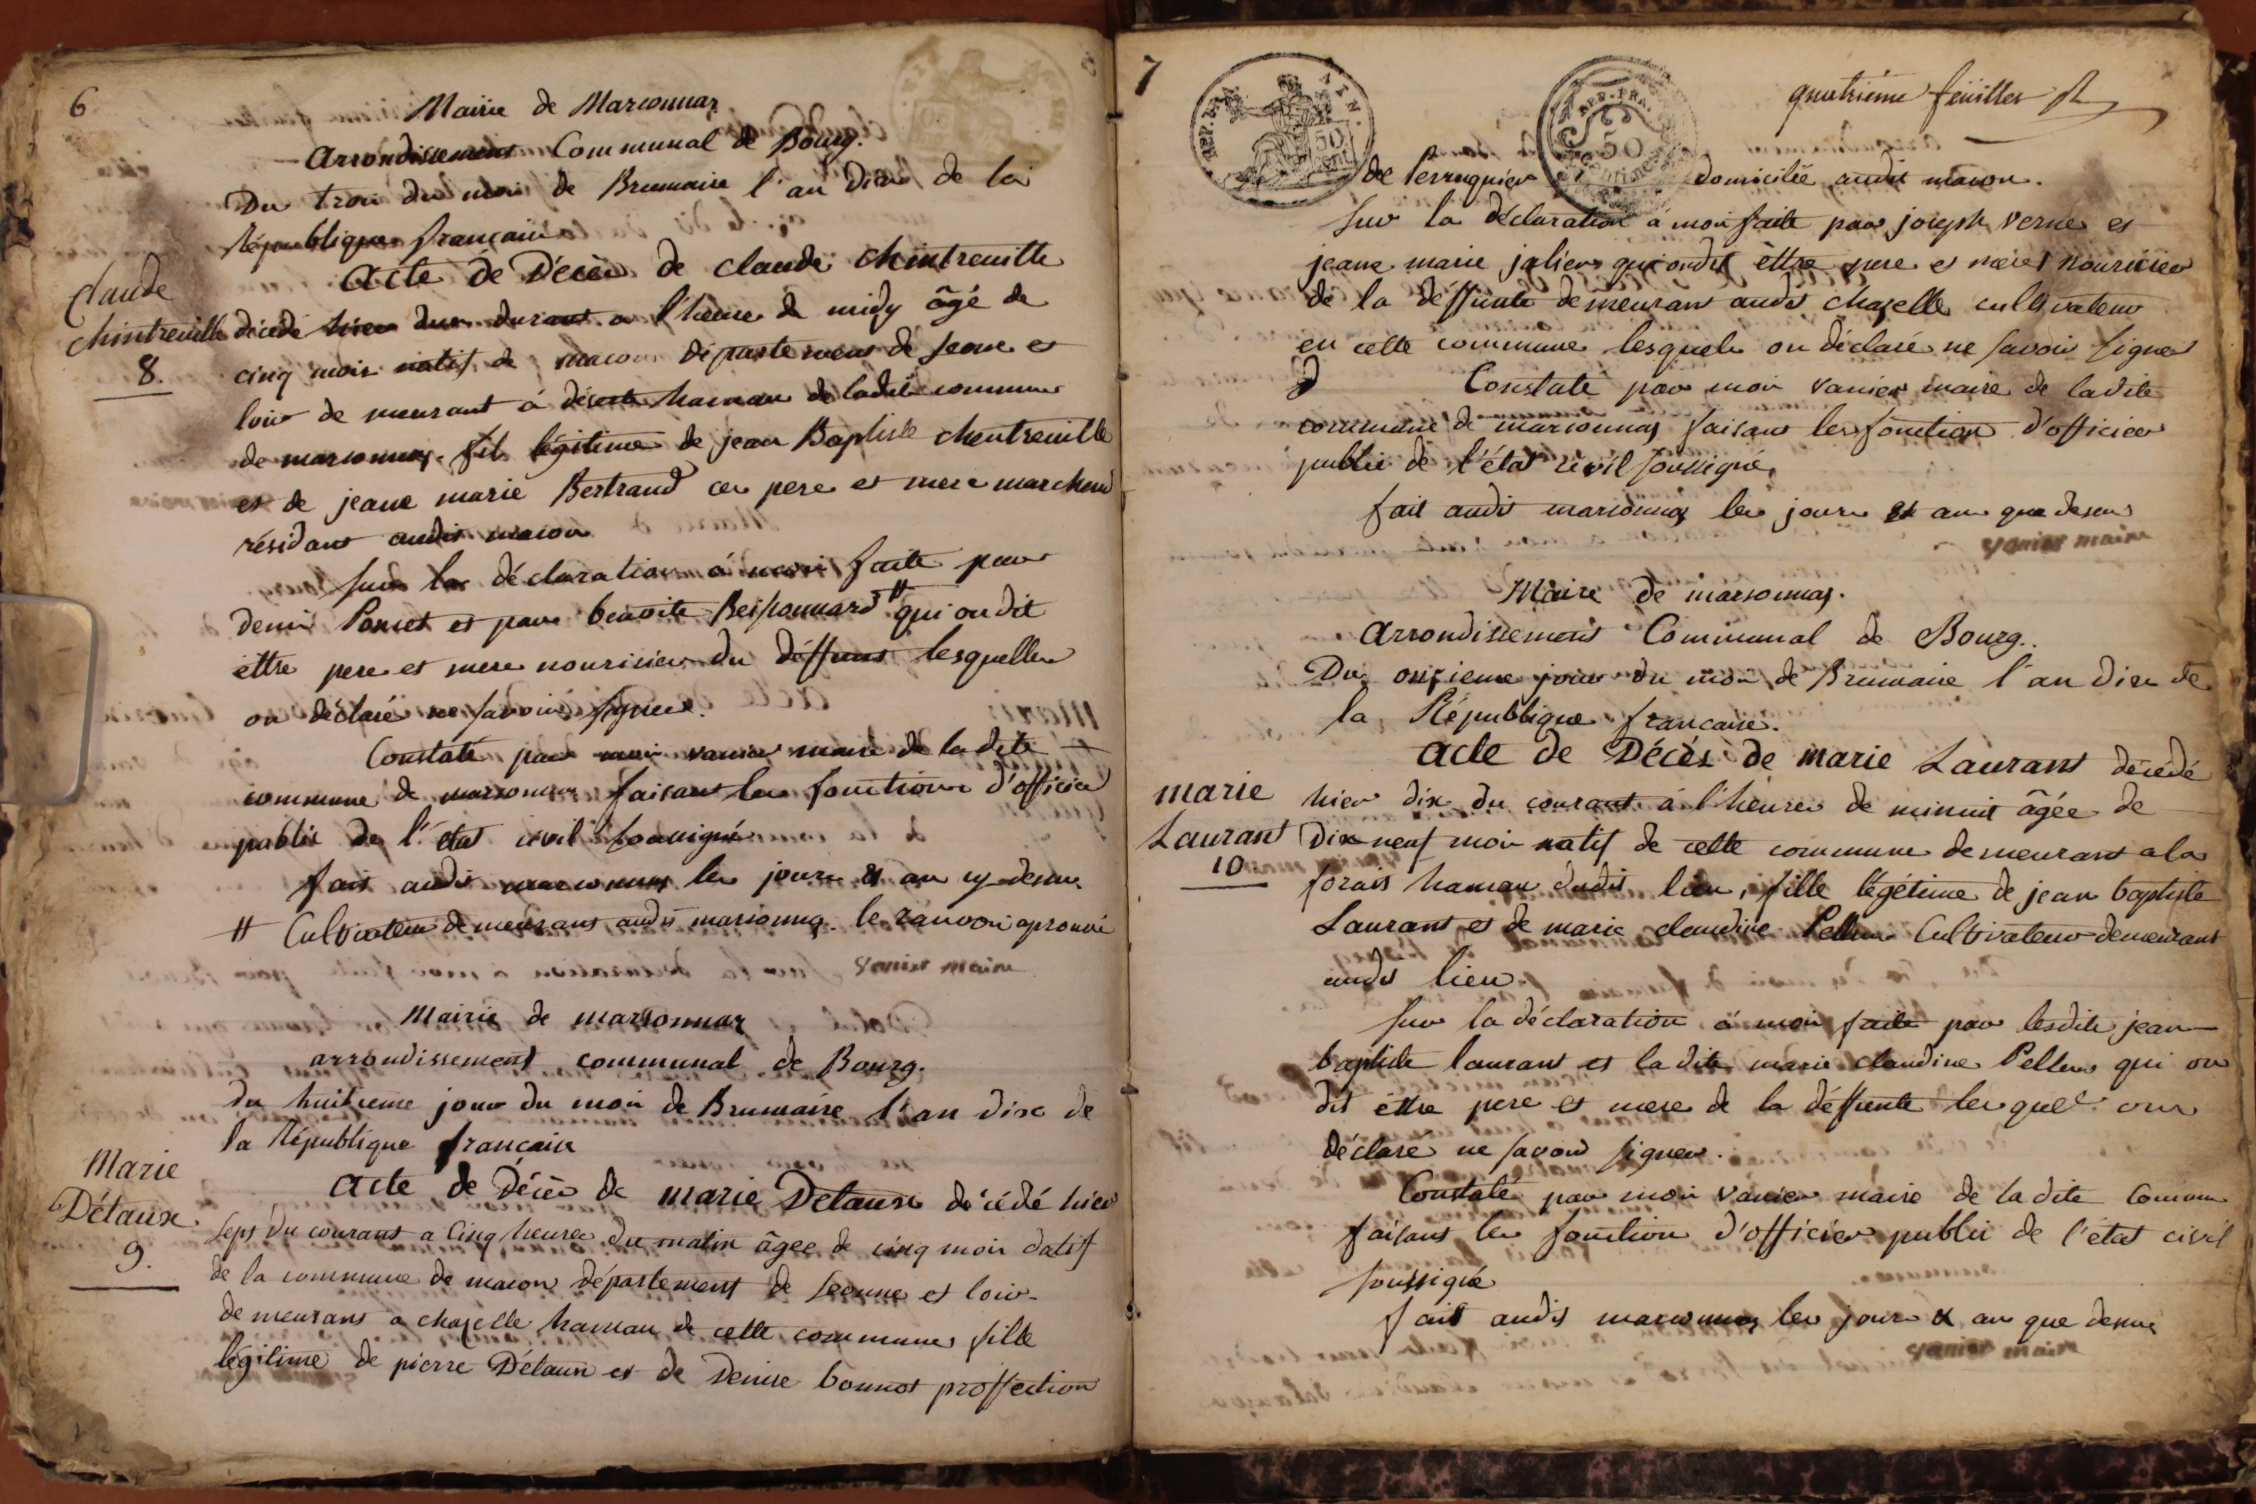 6
Mairie de Marsonnas
Arrondissement Communal de Bourg.
Du trois du mois de Brumaire l'an dix de la
République française
Acte de Décès de claude chintreuille
claude
chintreuille
8.
décédé hier deux durant a l'heure de midy âgé de
cinq mois natif de macon département de seone et
loir de meurant á hamau de ladite commune
de marsonnas. fils légitime de jean Baptiste chentreuille
et de jeane marie Bertrand ces pere et mere marchand
résidant audit macon
sur la déclaration á moi faite par
denis Poncet et par benoite # qui on dit
ettre pere et mere nouricier du déffunt lesquelles
on déclaré ne savoir signer.
Constaté par moi vanier maire de la dite
commune de marsonnas faisant les fonctions d'officier
public de l'état civil soussigné
fait audit marsonnas les jour & an desus
# Cultivateur demeurant audit marsonnas. le ranvoi aprouvé
vanier maire
Mairie de marsonnas
arrondissement communal de Bourg.
du huitieme jour du mois de Brumaire l'an dix de
la République française
Marie
Détaux
9.
Acte de Décès de marie Détaux décédé hier
sept du courant a cinq heures du matin âgée de cinq mois datif
de la commune de macon département de seonne et loir
demeurant a chazelle hamau de cette commune fille
légitime de pierre Détaux et de Denise bonnot proffection
7
REP. FRA.
50
cent
REP. FRA.
50
centimes
quatriéme feuillet
de Perruquier domiciliée audit macon.
sur la déclaration á moi faite par joseph verne et
jeane marie jalier qui ondit ettre pere et mere nouricier
de la déffunte demeurant audit chazelle cultivateur
en cette commune lesquels on déclaré ne savoir signer
Constaté par moi vanier maire de ladite
commune de marsonnas faisant les fonction d'officier
public de l'état civil soussigné.
fait audit marsonnas les jour & an que desus
vanier maire
Maire de marsonnas.
Arrondissement Communal de Bourg.
Du onzieme jour du mois de Brumaire l'an dix de
la République francaise.
Acte de Décès de marie Laurant décédé
marie
Laurant
10
hier dix du courant á l'heure de minuit âgée de
dix neuf mois natif de cette commune demeurant a la
forais hamau dudit lieu, fille légétime de jean baptiste
Laurant et de marie claudine Pellus Cultivateur demeurant
audit lieu.
sur la déclaration á moi faite par lesdite jean
baptiste laurant et la dite marie claudine Pellus qui on
dit éttre pere et mere de la déffunte lesquels ons
déclaré ne savoir signer.
Constaté par moi vanier maire de la dite Commune
faisant les fonction d'officier public de l'état civil
soussigné
fait audit marsonnas les jour & an que desus
vanier maire